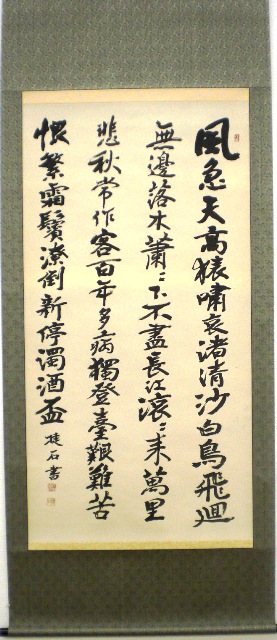 風急天高猿嘯哀渚清沙白鳥飛廻
無邊落木蕭〻下不盡長江滾〻来萬里
悲秋常作客百年多病獨登臺艱難苦
恨繁霜鬢潦倒新停濁酒盃
桂石書